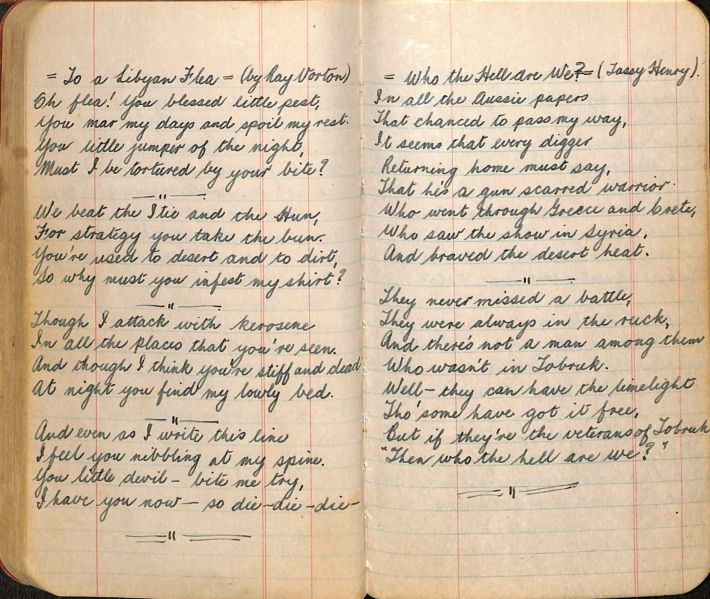 = To a Libyan Flea = (by Ray Vorton)
Oh flea! You blessed little pest,
You mar my days and spoil my rest.
You little jumper of the night,
Must I be tortured by your bite?
We beat the Itie and the Hun,
For strategy you take the bun.
You're used to desert and to dirt,
So why must you infest my shirt?
Though I attack with kerosene
In all the places that you're seen.
And though I think you're stiff and dead
At night you find my lowly bed.
And even as I write this line
I feel you nibbling at my spine.
You little devil - bite me try,
I have you now - so die-die-die-
= Who the Hell are We? = (Tassy Henry).
In all the Aussie papers
That chanced to pass my way,
It seems that every digger
Returning home must say,
That he's a gun scarred warrior.
Who went through Greece and Crete,
Who saw the show in Syria,
And braved the desert heat.
They never missed a battle,
They were always in the ruck,
And there's not a man among them
Who wasn't in Tobruk.
Well - they can have the limelight
Tho some have got it free,
But if they're the veterans of Tobruk
"Then who the hell are we?"